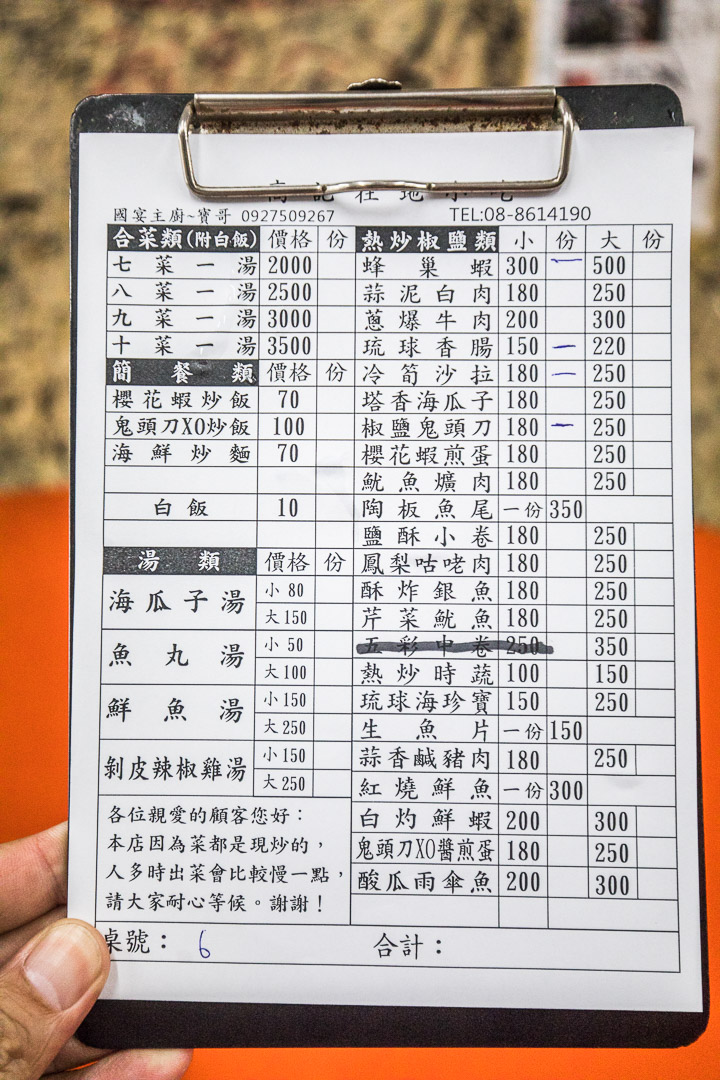 高記在地小吃
國宴主廚~寶哥 0927509267 TEL:08-8614190
合菜類(附白飯) 價格 份
七菜一湯 2000
八菜一湯 2500
九菜一湯 3000
十菜一湯 3500
簡餐類 價格 份
櫻花蝦炒飯 70
鬼頭刀XO炒飯 100
海鮮炒麵 70
白飯 10
湯類 價格 份
海瓜子湯 小80
大150
魚丸湯 小50
大100
鮮魚湯 小150
大250
剝皮辣椒雞湯 小150
大250
各位親愛的顧客您好：
本店因為菜都是現炒的，
人多時出菜會比較慢一點，
請大家耐心等候。謝謝！
熱炒椒鹽類 小 份 大 份
蜂巢蝦 300 一 500
蒜泥白肉 180 250
蔥爆牛肉 200 300
琉球香腸 150 一 220
冷筍沙拉 180 一 250
塔香海瓜子 180 250
椒鹽鬼頭刀 180 一 250
櫻花蝦煎蛋 180 250
魷魚爌肉 180 250
陶板魚尾 一份 350
鹽酥小卷 180 250
鳳梨咕咾肉 180 250
酥炸銀魚 180 250
芹菜魷魚 180 250
五彩中卷 250 350
熱炒時蔬 100 150
琉球海珍寶 150 250
生魚片 一份 150
蒜香鹹豬肉 180 250
紅燒鮮魚 一份 300
白灼鮮蝦 200 300
鬼頭刀XO醬煎蛋 180 250
酸瓜雨傘魚 200 300
桌號：6 合計：